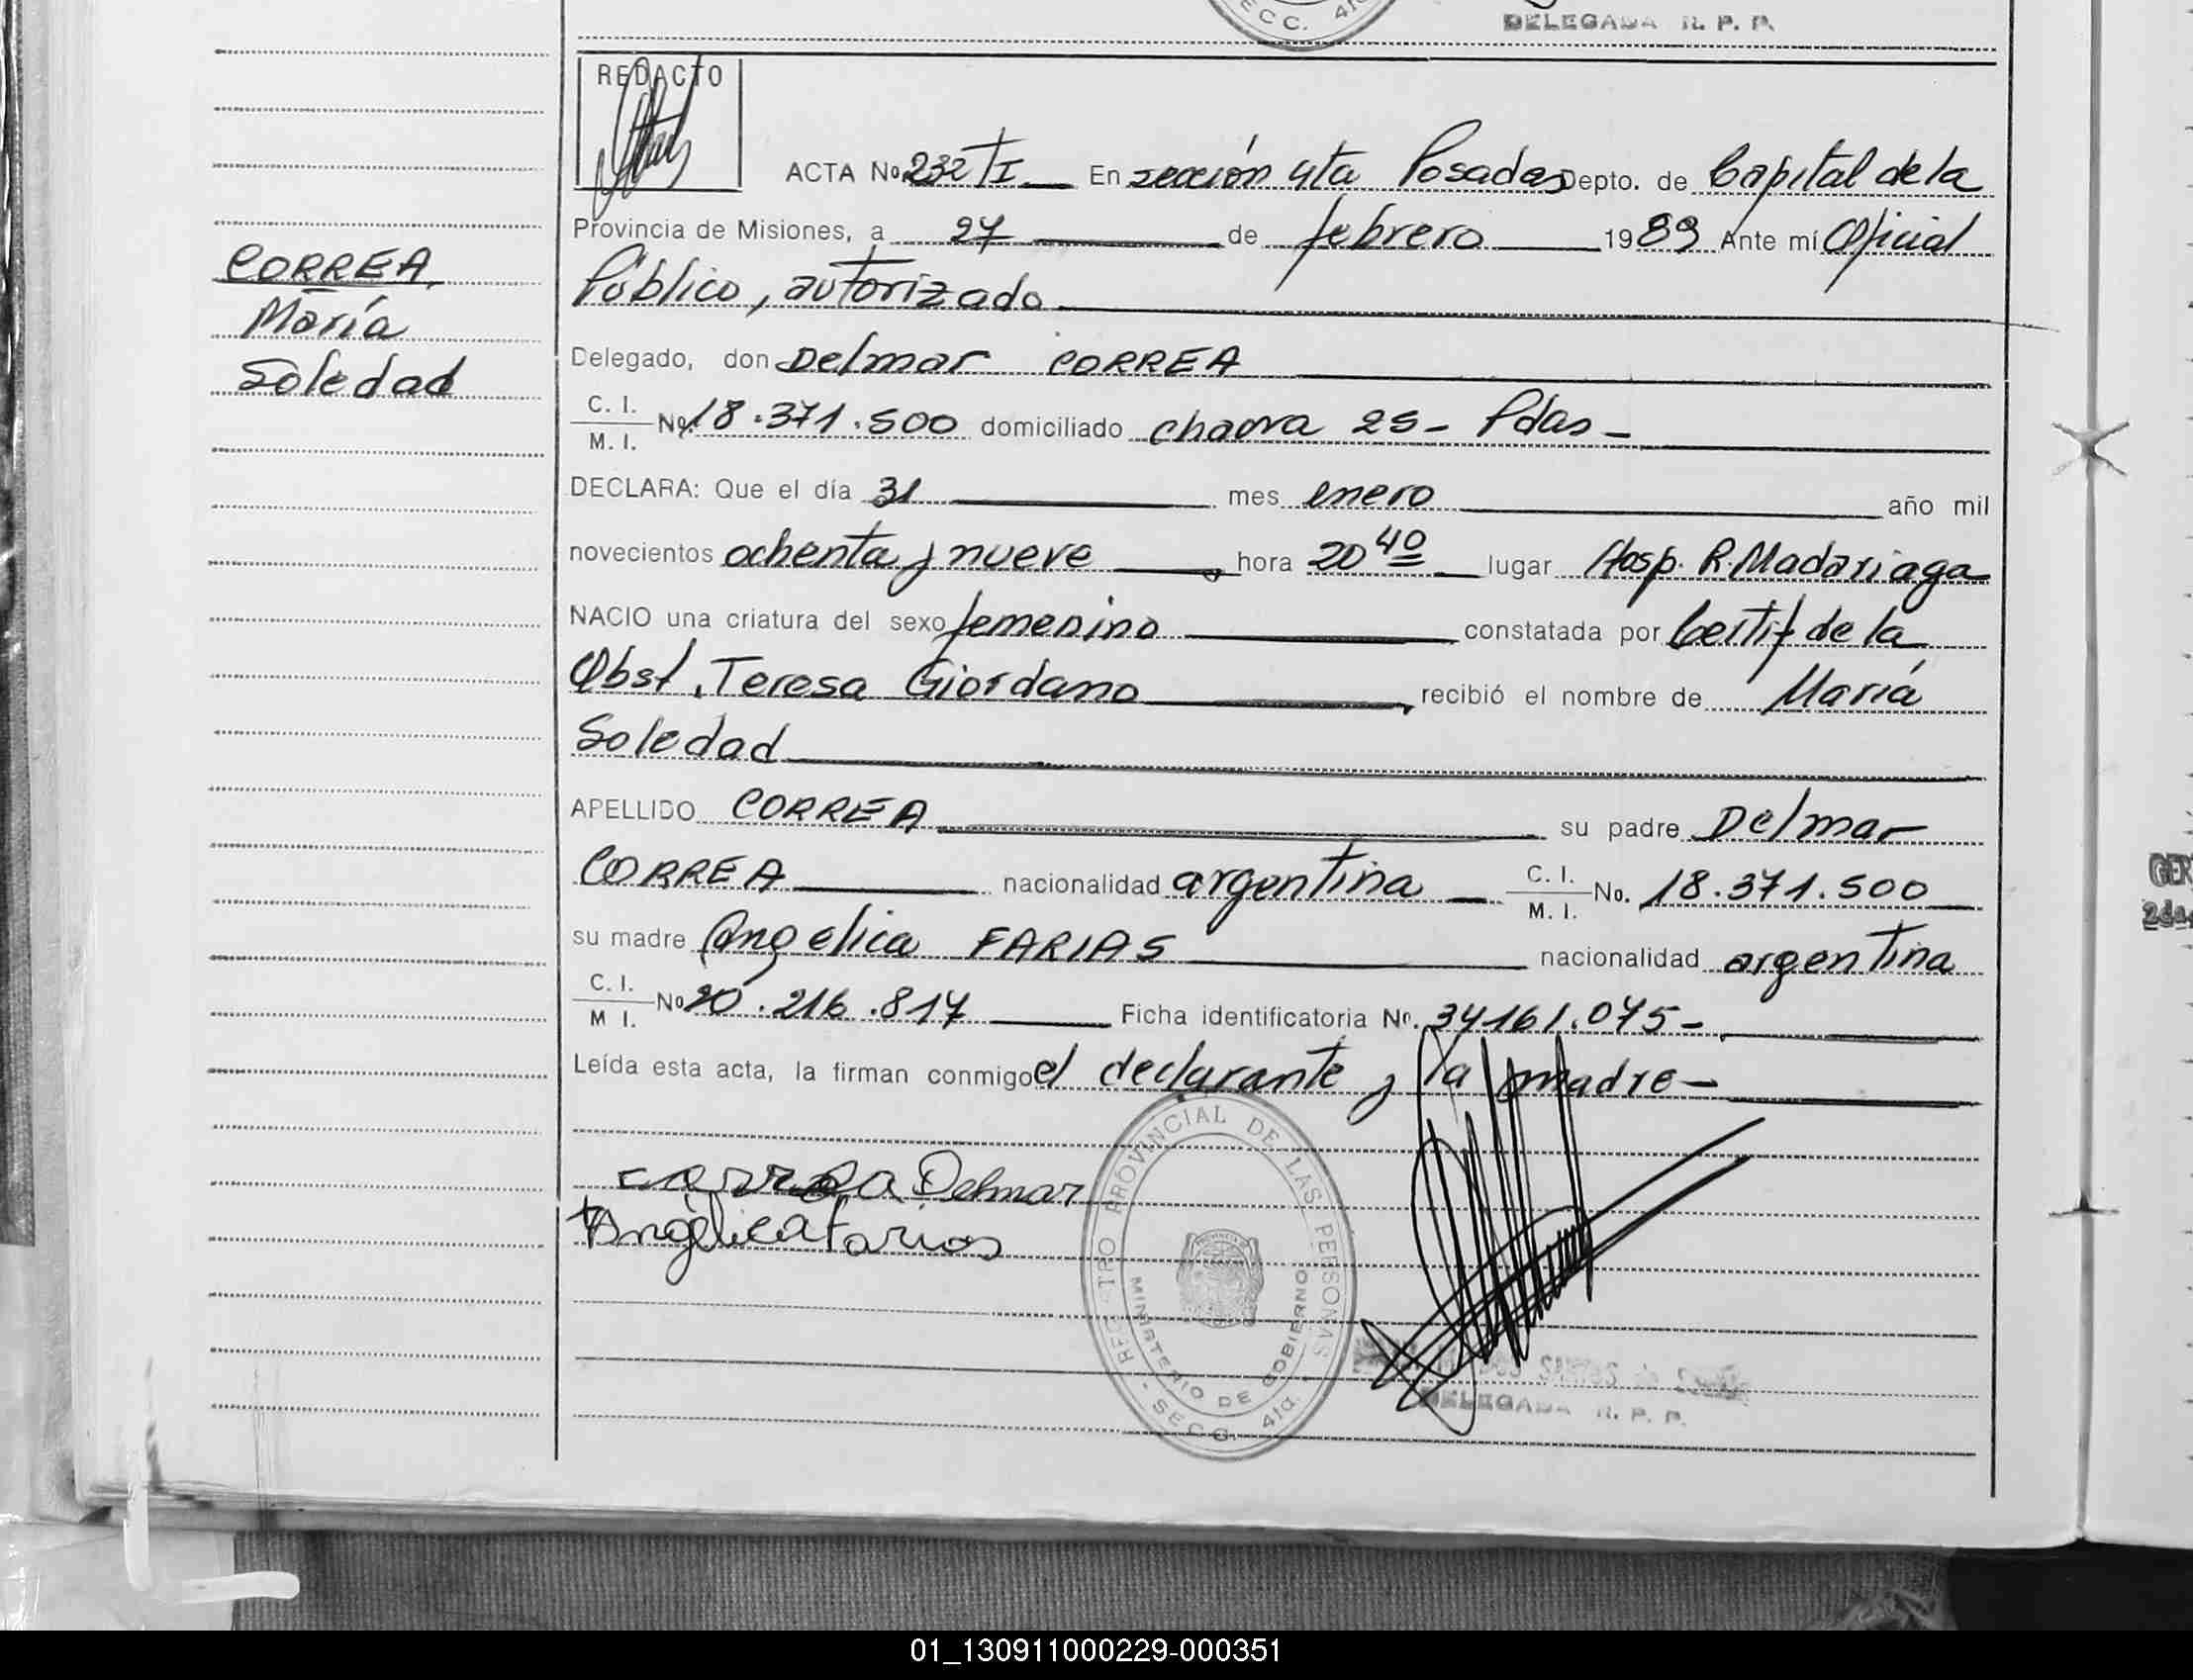 SECC. 4ta
DELEGADA R. P. P.
REDACTO
ACTA No 232 TI En sección 4ta Posadas Depto. de Capital de la
Provincia de Misiones, a 27 de febrero 1989 Ante mí Oficial
Público, autorizado
Delegado, don Delmar CORREA
C. I. M. I. No. 18.371.500 domiciliado chacra 25- Pdas-
DECLARA: Que el día 31 mes enero año mil
novecientos ochenta y nueve, hora 20 40 lugar Hosp. R. Madariaga
NACIO una criatura del sexo femenino constatada por Certif de la
Obst. Teresa Giordano, recibió el nombre de María
Soledad
APELLIDO CORREA su padre Delmar
CORREA nacionalidad argentina C. I. M. I. No. 18.371.500
su madre Angelica FARIAS nacionalidad argentina
C. I. M I. No 20.216.817 Ficha identificatoria No. 34161.075-
Leída esta acta, la firman conmigo el declarante y la madre-
CORREA,
María
Soledad
Correa Delmar
Angélica Farias
REGISTRO PROVINCIAL DE LAS PERSONAS
MINISTERIO DE GOBIERNO
SECC. 4ta.
DOS SANTOS de
DELEGADA R. P. P.
CER
2da
01_130911000229-000351